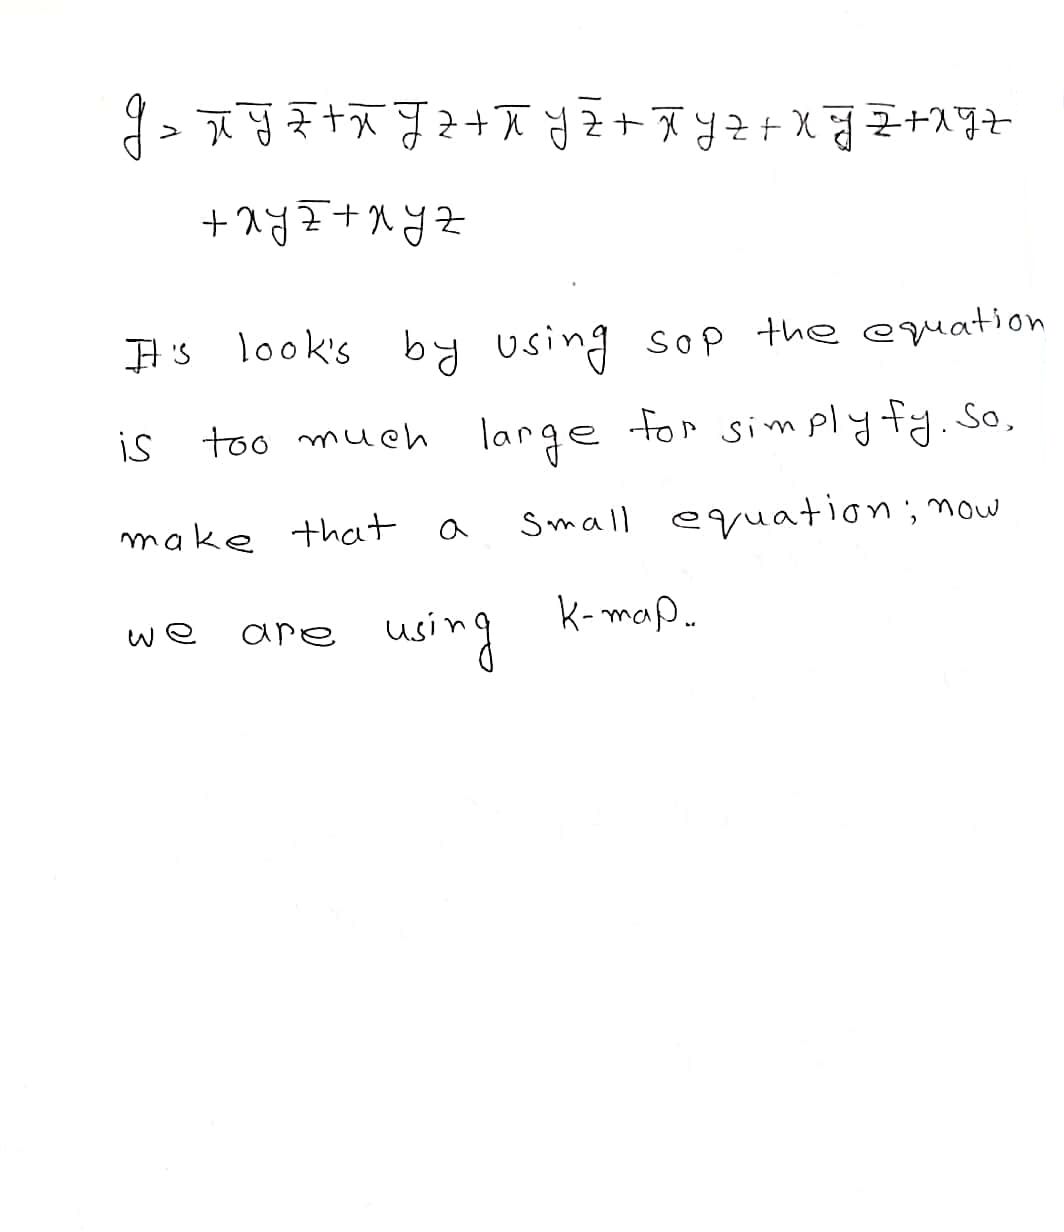 g = x̅ y̅ z̅ + x̅ y̅ z + x̅ y z̅ + x̅ y z + x y̅ z̅ + x y̅ z
+ x y z̅ + x y z
It's look's by using sop the equation
is too much large for simplyfy. So,
make that a small equation; now
we are using k-map..